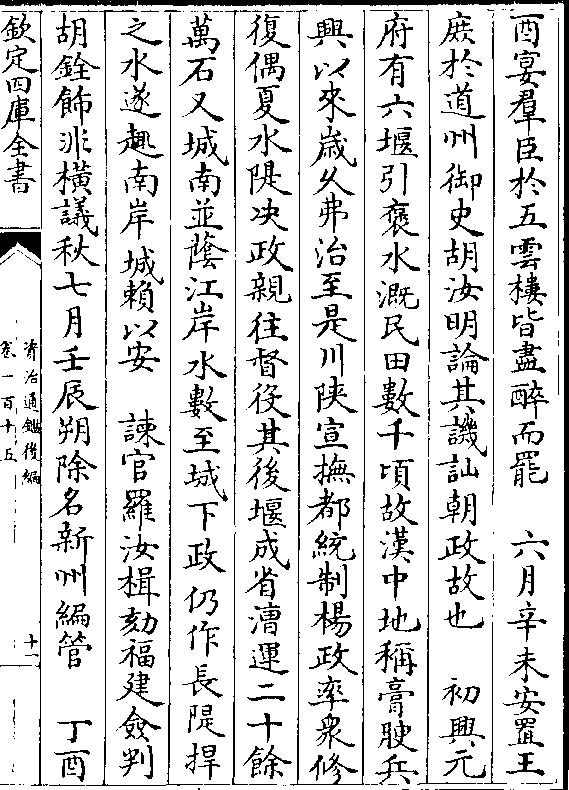 酉宴羣臣於五雲樓皆盡醉而罷　六月辛未安置王
庶於道州御史胡汝明論其譏訕朝政故也　初興元
府有六堰引褒水溉民田數千頃故漢中地稱膏腴兵
興以來歲久弗治至是川陝宣撫都統制楊政率衆修
復偶夏水隄决政親往督役其後堰成省漕運二十餘
萬石又城南並蔭江岸水數至城下政仍作長隄捍
之水遂趣南岸城賴以安　諫官羅汝楫劾福建僉判
胡銓飾非橫議秋七月壬辰朔除名新州編管　丁酉
欽定四庫全書
資治通鑑後編
卷一百十五
十一